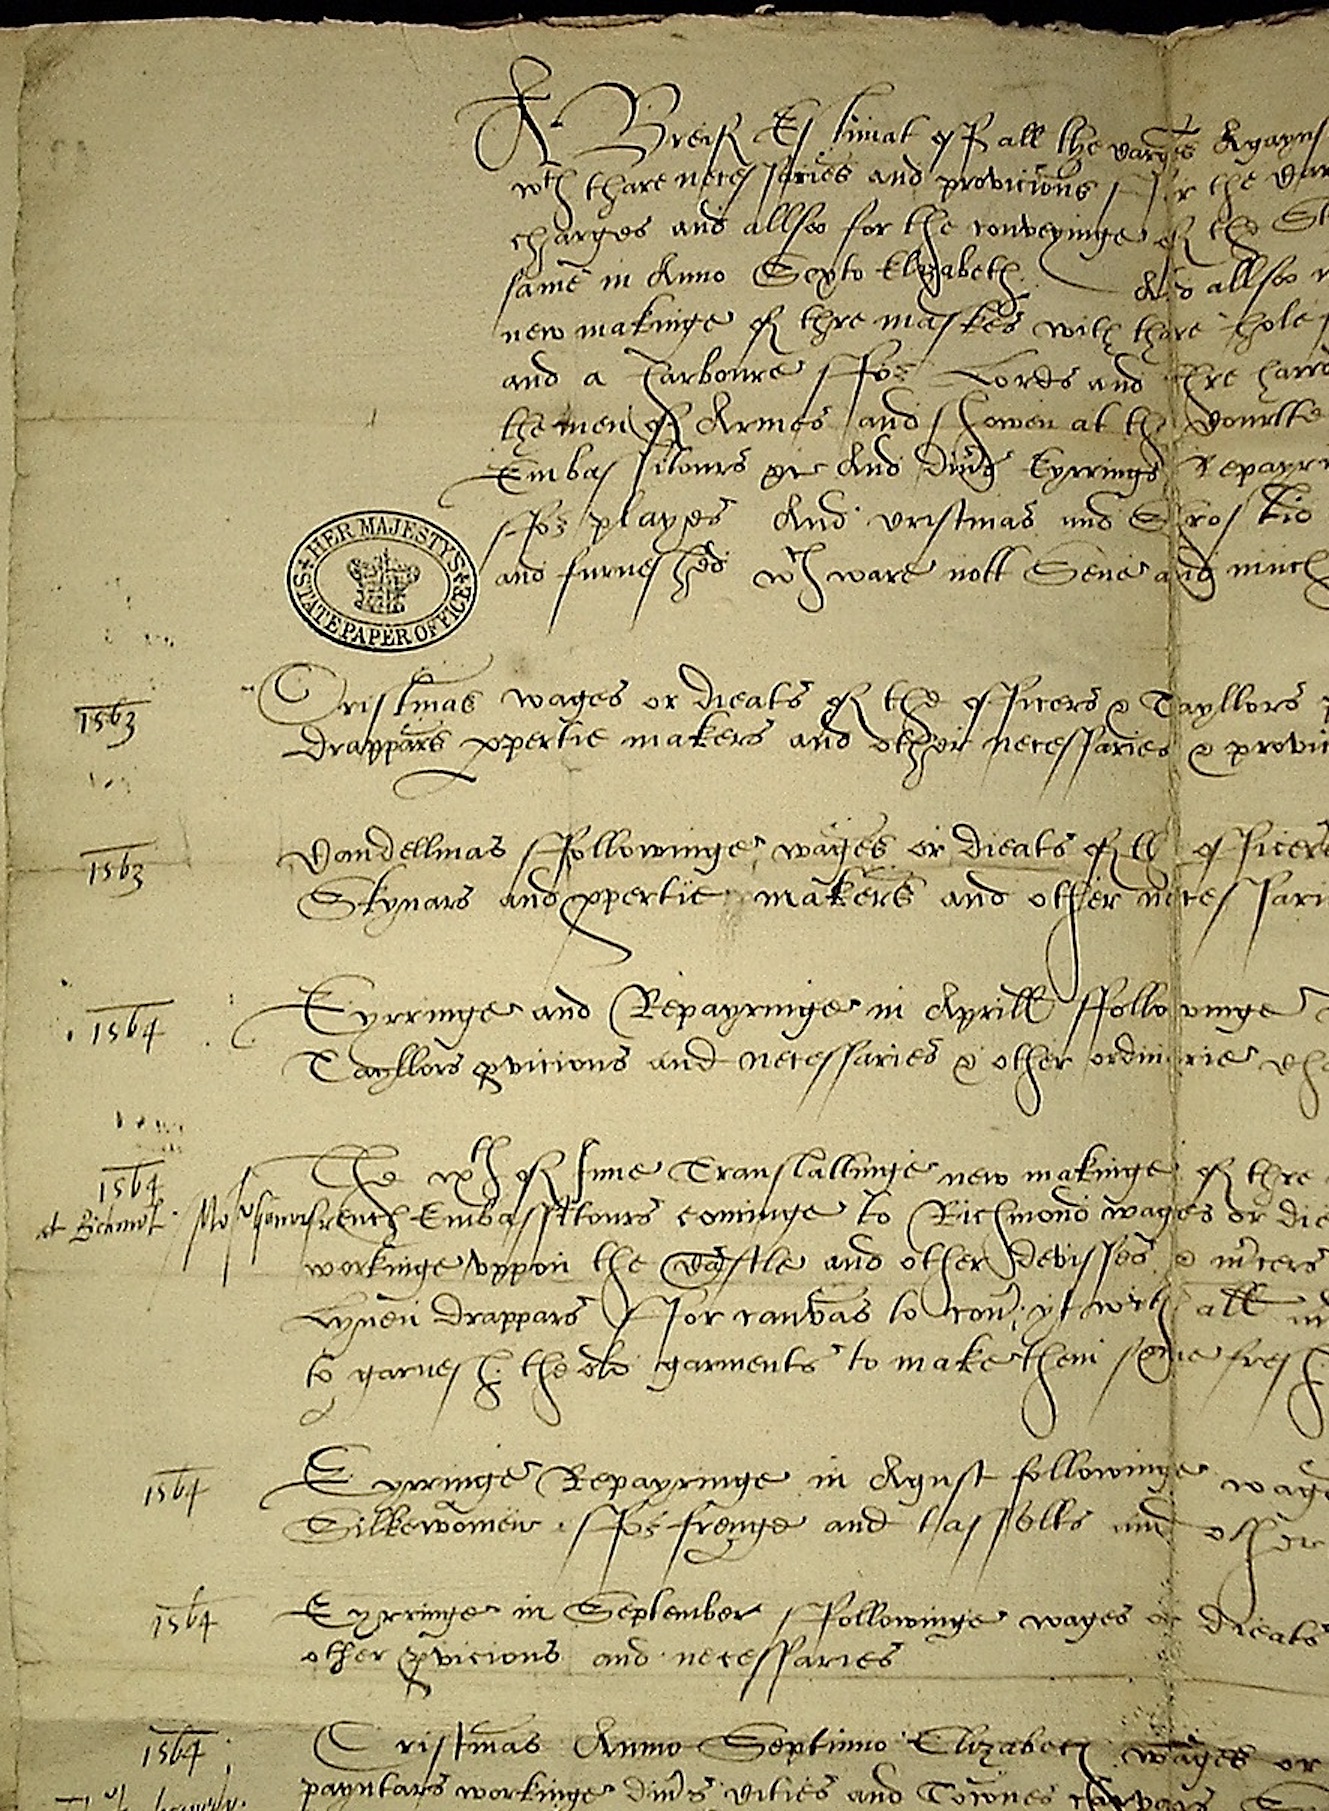 A Breif Estimat off all the charges Agaynst
wth thare necessaries and provicions ffor the
charges and allso for the conveyinge of the St
same in Anno Sexto Elizabeth And allso
new makinge of thre maskes with thare hole
and a harboure ffor Lords and thre harro
the men of Armes and showen at the Courtte
Embassitours &c And divers Eyrrings Repayri
ffor playes And Cristmas and Shroftid
and furneshed wth ware nott Sene and mich
HER MAJESTY'S STATE PAPER OFFICE
1563 Cristmas wages or dieats of the officers & Tayllors
Drappars propertie makers and other necessaries & provic
1563 Candellmas ffollowinge wages or dieats of the officers
Skynars and propertie makers and other necessari
1564 Eyrringe and Repayringe in Aprill ffollowinge
Tayllors provicions and necessaries & other ordinarie cha
1564 The ixth of June Translattinge new makinge of thre
at Richmont Mosr Gonvi french Embassitours cominge to Richmond wages or die
workinge uppon the Castle and other devisses & mercers
Lynen drappars ffor canvas to cover yt with all and
to garnesh the old garments to make them seme fresh
1564 Eyrringe Repayringe in Agust followinge wages
Silkewomen ffor frenge and tassells and other
1564 Eyrringe in September ffollowinge wages or dieats
other provicions and necessaries
1564 Cristmas Anno Septimo Elizabeth wages or
payntars workinge divers Cities and Townes carvars